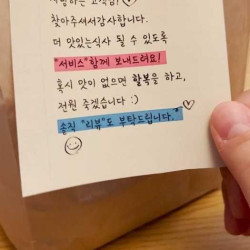 찾아주셔서감사합니다.
더 맛있는식사 될 수 있도록
"서비스"함께 보내드려요!
혹시 맛이 없으면 할복을 하고,
전원 죽겠습니다 :)
솔직 "리뷰"도 부탁드립니다.